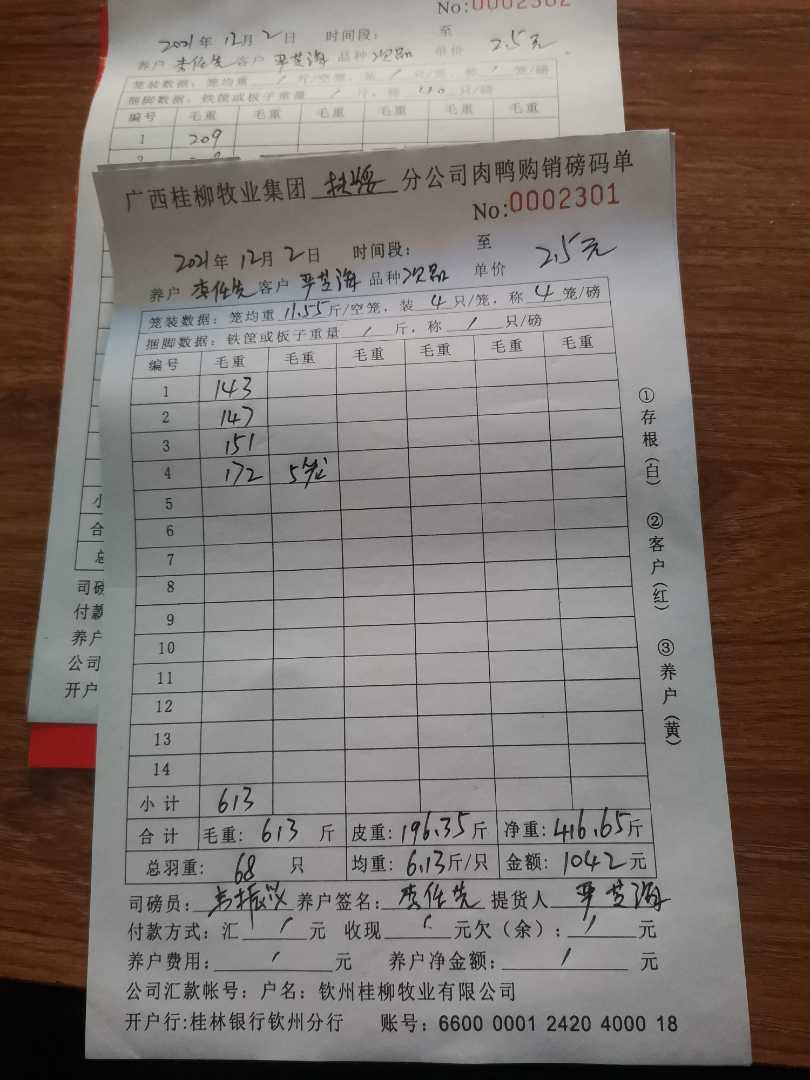 No:0002302
2021年12月2日 时间段: 至
养户 李任先 客户 严芝海 品种 次品 单价 2.5元
笼装数据: 笼均重 / 斤/空笼, 装 / 只/笼, 称 / 笼/磅
捆脚数据: 铁筐或板子重量 / 斤, 称 只/磅
编号 毛重 毛重 毛重 毛重 毛重 毛重
1 209
广西桂柳牧业集团 扶绥 分公司肉鸭购销磅码单
No:0002301
2021年12月2日 时间段: 至
养户 李任先 客户 严芝海 品种 次品 单价 2.5元
笼装数据: 笼均重 11.55 斤/空笼, 装 4 只/笼, 称 4 笼/磅
捆脚数据: 铁筐或板子重量 / 斤, 称 / 只/磅
编号 毛重 毛重 毛重 毛重 毛重 毛重
1 143
2 147
3 151
4 172 5笼
5
6
7
8
9
10
11
12
13
14
小计 613
合计 毛重: 613 斤 皮重: 196.35 斤 净重: 416.65 斤
总羽重: 68 只 均重: 6.13 斤/只 金额: 1042 元
司磅员: 振议 养户签名: 李任先 提货人 严芝海
付款方式: 汇 / 元 收现 / 元欠(余): / 元
养户费用: / 元 养户净金额: / 元
公司汇款帐号: 户名: 钦州桂柳牧业有限公司
开户行:桂林银行钦州分行 账号: 6600 0001 2420 4000 18
①存根(白) ②客户(红) ③养户(黄)
小
合
总
司磅
付款
养户
公司
开户